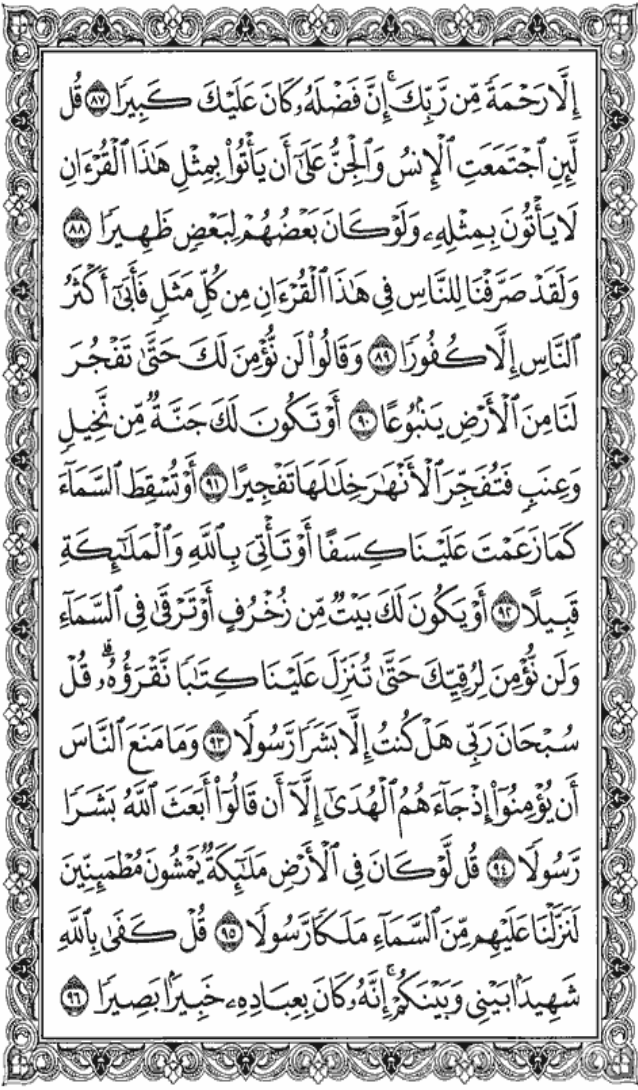 إِلَّا رَحْمَةً مِّن رَّبِّكَ ۚ إِنَّ فَضْلَهُۥ كَانَ عَلَيْكَ كَبِيرًا ٨٧ قُل
لَّئِنِ ٱجْتَمَعَتِ ٱلْإِنسُ وَٱلْجِنُّ عَلَىٰٓ أَن يَأْتُوا۟ بِمِثْلِ هَٰذَا ٱلْقُرْءَانِ
لَا يَأْتُونَ بِمِثْلِهِۦ وَلَوْ كَانَ بَعْضُهُمْ لِبَعْضٍ ظَهِيرًا ٨٨
وَلَقَدْ صَرَّفْنَا لِلنَّاسِ فِى هَٰذَا ٱلْقُرْءَانِ مِن كُلِّ مَثَلٍ فَأَبَىٰٓ أَكْثَرُ
ٱلنَّاسِ إِلَّا كُفُورًا ٨٩ وَقَالُوا۟ لَن نُّؤْمِنَ لَكَ حَتَّىٰ تَفْجُرَ
لَنَا مِنَ ٱلْأَرْضِ يَنۢبُوعًا ٩٠ أَوْ تَكُونَ لَكَ جَنَّةٌ مِّن نَّخِيلٍ
وَعِنَبٍ فَتُفَجِّرَ ٱلْأَنْهَٰرَ خِلَٰلَهَا تَفْجِيرًا ٩١ أَوْ تُسْقِطَ ٱلسَّمَآءَ
كَمَا زَعَمْتَ عَلَيْنَا كِسَفًا أَوْ تَأْتِىَ بِٱللَّهِ وَٱلْمَلَٰٓئِكَةِ
قَبِيلًا ٩٢ أَوْ يَكُونَ لَكَ بَيْتٌ مِّن زُخْرُفٍ أَوْ تَرْقَىٰ فِى ٱلسَّمَآءِ
وَلَن نُّؤْمِنَ لِرُقِيِّكَ حَتَّىٰ تُنَزِّلَ عَلَيْنَا كِتَٰبًا نَّقْرَؤُهُۥ ۗ قُلْ
سُبْحَانَ رَبِّى هَلْ كُنتُ إِلَّا بَشَرًا رَّسُولًا ٩٣ وَمَا مَنَعَ ٱلنَّاسَ
أَن يُؤْمِنُوٓا۟ إِذْ جَآءَهُمُ ٱلْهُدَىٰٓ إِلَّآ أَن قَالُوٓا۟ أَبَعَثَ ٱللَّهُ بَشَرًا
رَّسُولًا ٩٤ قُل لَّوْ كَانَ فِى ٱلْأَرْضِ مَلَٰٓئِكَةٌ يَمْشُونَ مُطْمَئِنِّينَ
لَنَزَّلْنَا عَلَيْهِم مِّنَ ٱلسَّمَآءِ مَلَكًا رَّسُولًا ٩٥ قُلْ كَفَىٰ بِٱللَّهِ
شَهِيدًۢا بَيْنِى وَبَيْنَكُمْ ۚ إِنَّهُۥ كَانَ بِعِبَادِهِۦ خَبِيرًۢا بَصِيرًا ٩٦